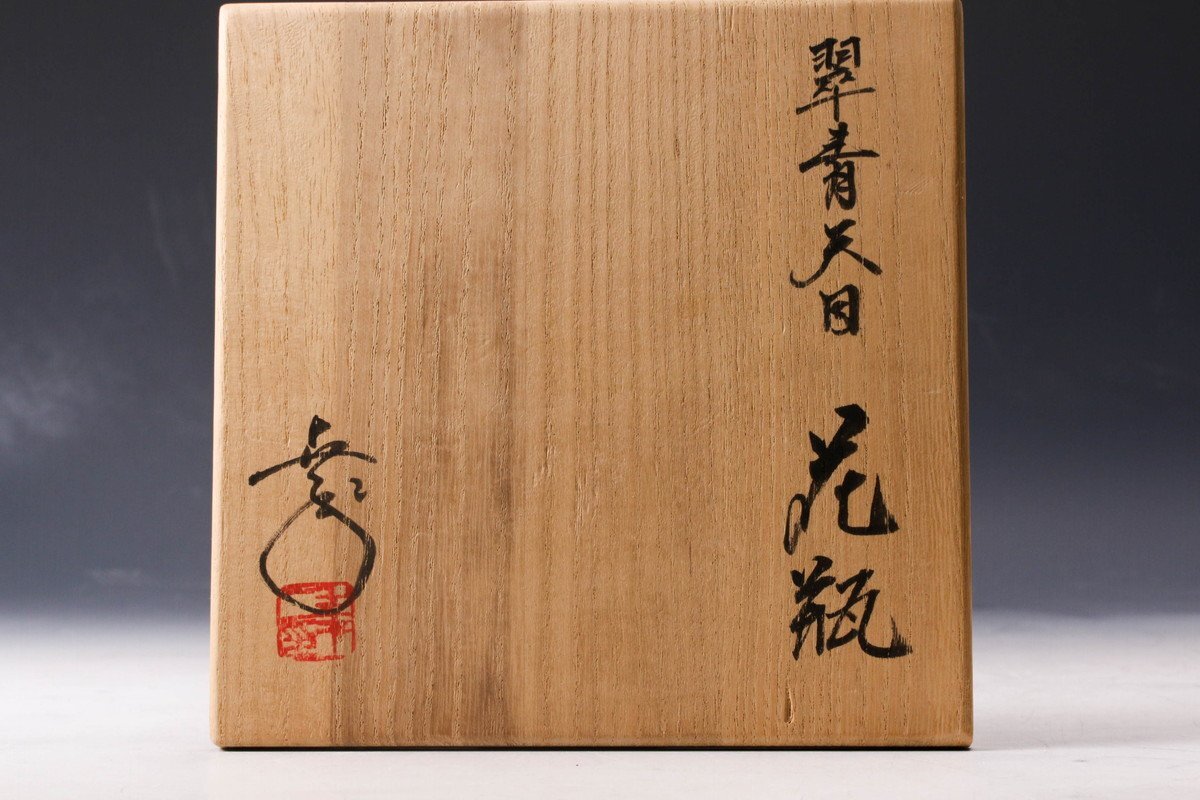 翠青天目 花瓶